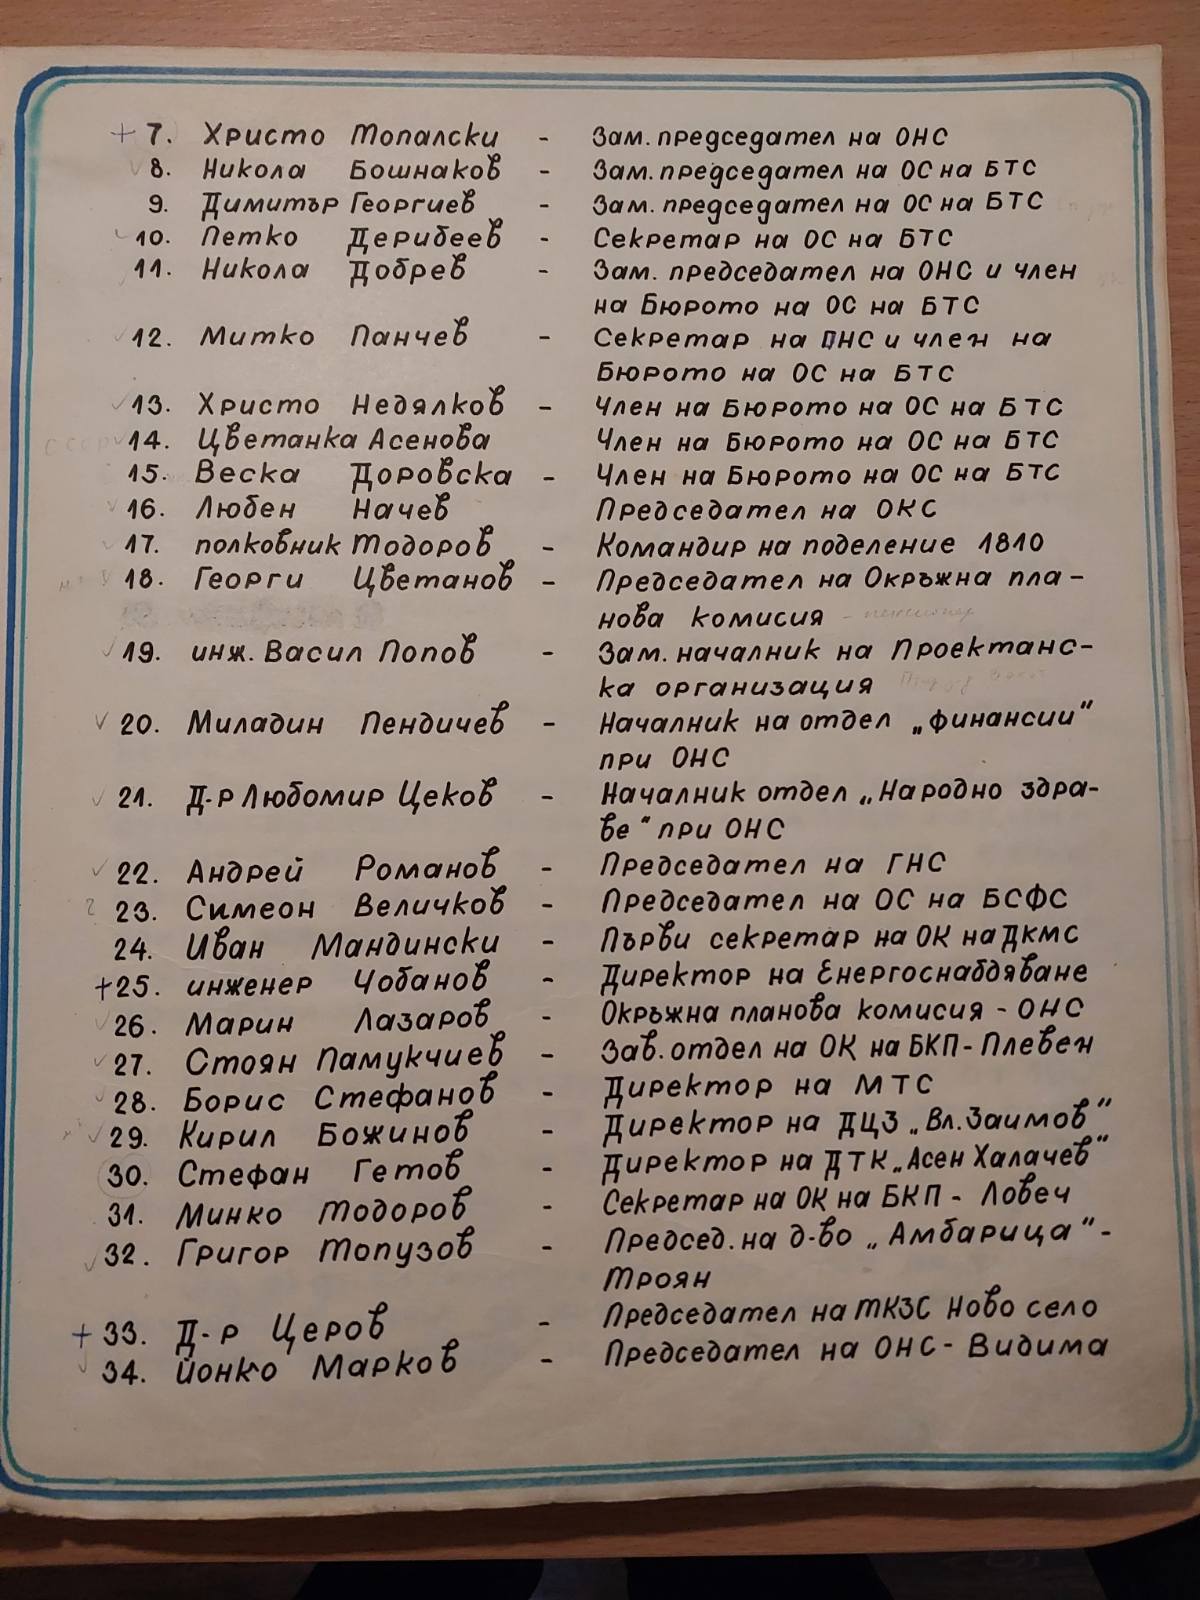 + 7. Христо Топалски - Зам. председател на ОНС
✓ 8. Никола Бошнаков - Зам. председател на ОС на БТС
9. Димитър Георгиев - Зам. председател на ОС на БТС
✓ 10. Петко Дерибеев - Секретар на ОС на БТС
11. Никола Добрев - Зам. председател на ОНС и член
на Бюрото на ОС на БТС
✓ 12. Митко Панчев - Секретар на ОНС и член на
Бюрото на ОС на БТС
✓ 13. Христо Недялков - Член на Бюрото на ОС на БТС
✓ 14. Цветанка Асенова Член на Бюрото на ОС на БТС
15. Веска Доровска - Член на Бюрото на ОС на БТС
✓ 16. Любен Начев Председател на ОКС
✓ 17. полковник Тодоров - Командир на поделение 1810
18. Георги Цветанов - Председател на Окръжна пла-
нова комисия - пенсионер
✓ 19. инж. Васил Попов - Зам. началник на Проектанс-
ка организация
✓ 20. Миладин Пендичев - Началник на отдел „финансии"
при ОНС
✓ 21. Д-р Любомир Цеков - Началник отдел „Народно здра-
ве" при ОНС
✓ 22. Андрей Романов - Председател на ГНС
? 23. Симеон Величков - Председател на ОС на БСФС
24. Иван Мандински - Първи секретар на ОК на ДКМС
+ 25. инженер Чобанов - Директор на Енергоснабдяване
✓ 26. Марин Лазаров - Окръжна планова комисия - ОНС
✓ 27. Стоян Памукчиев - Зав. отдел на ОК на БКП - Плевен
✓ 28. Борис Стефанов - Директор на МТС
✓ 29. Кирил Божинов - Директор на ДЦЗ „Вл. Заимов"
30. Стефан Гетов - Директор на ДТК „Асен Халачев"
31. Минко Тодоров - Секретар на ОК на БКП - Ловеч
✓ 32. Григор Топузов - Председ. на д-во „Амбарица" -
Троян
+ 33. Д-р Церов - Председател на ТКЗС Ново село
✓ 34. Йонко Марков - Председател на ОНС - Видима